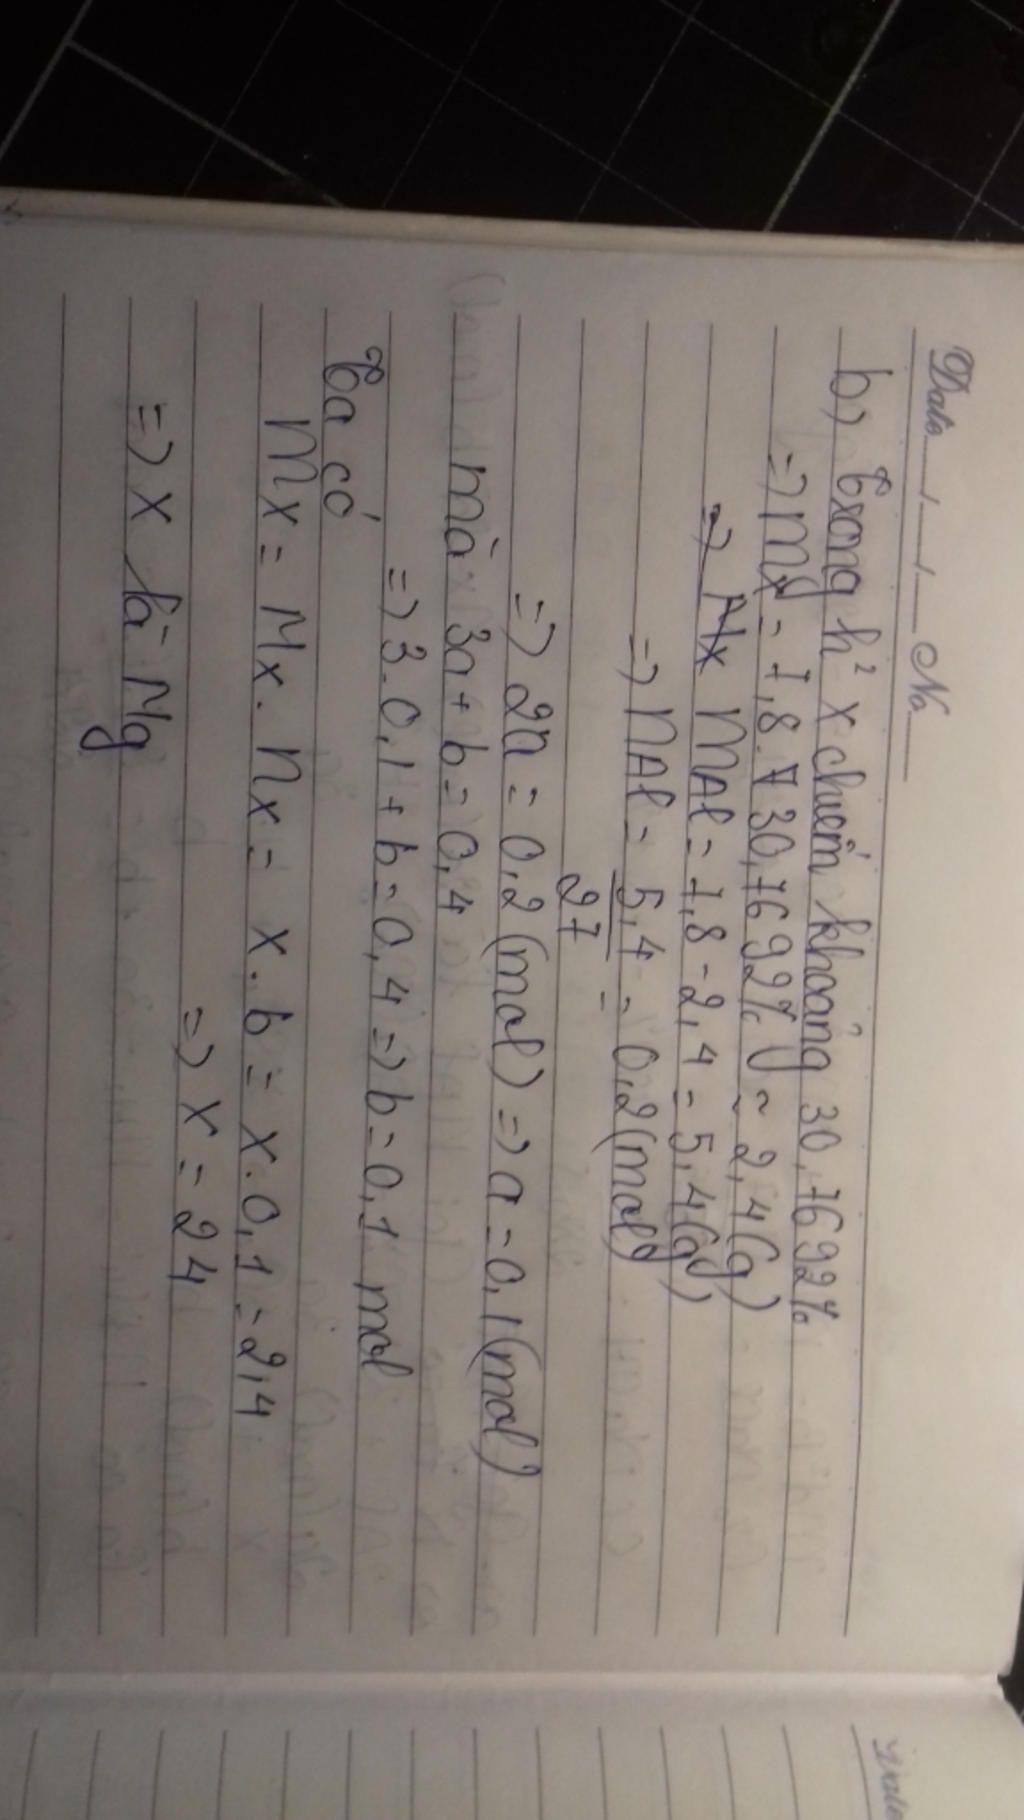 Date __/__/__ No__
b) Trong h² x chiếm khoảng 30,7692%
=> mx = 7,8. 30,7692% ≈ 2,4(g)
=> mAl = 7,8 - 2,4 = 5,4(g)
=> nAl = 5,4/27 = 0,2(mol)
=> 2a = 0,2(mol) => a = 0,1(mol)
mà 3a + b = 0,4
=> 3.0,1 + b = 0,4 => b = 0,1 mol
Ta có
mx = Mx. nx = x.b = x.0,1 = 2,4
=> x = 24
=> x là Mg
Date